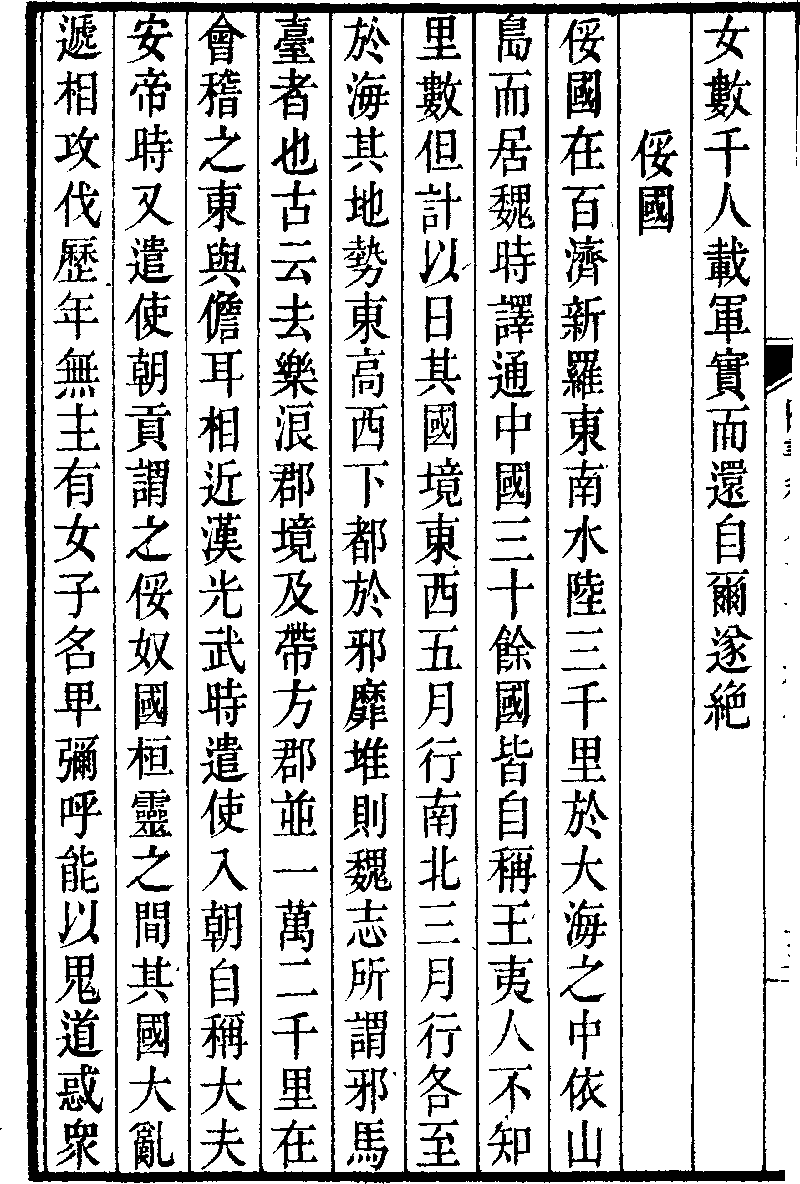 女數千人載軍實而還自爾遂絶
俀國
俀國在百濟新羅東南水陸三千里於大海之中依山
島而居魏時譯通中國三十餘國皆自稱王夷人不知
里數但計以日其國境東西五月行南北三月行各至
於海其地勢東高西下都於邪靡堆則魏志所謂邪馬
臺者也古云去樂浪郡境及帶方郡並一萬二千里在
會稽之東與儋耳相近漢光武時遣使入朝自稱大夫
安帝時又遣使朝貢謂之俀奴國桓靈之間其國大亂
遞相攻伐歷年無主有女子名卑彌呼能以鬼道惑衆